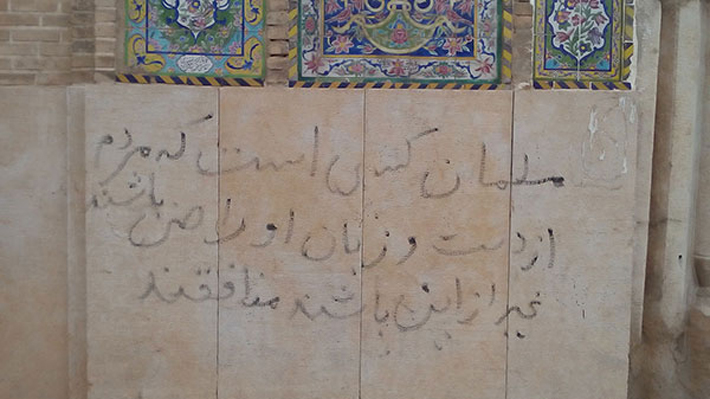 مسلمان کسی است که مردم
از دست و زبان او راضی باشند
غیر از این باشند منافقند